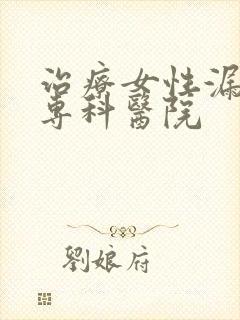 治療女性漏
專科醫院
劉娘府